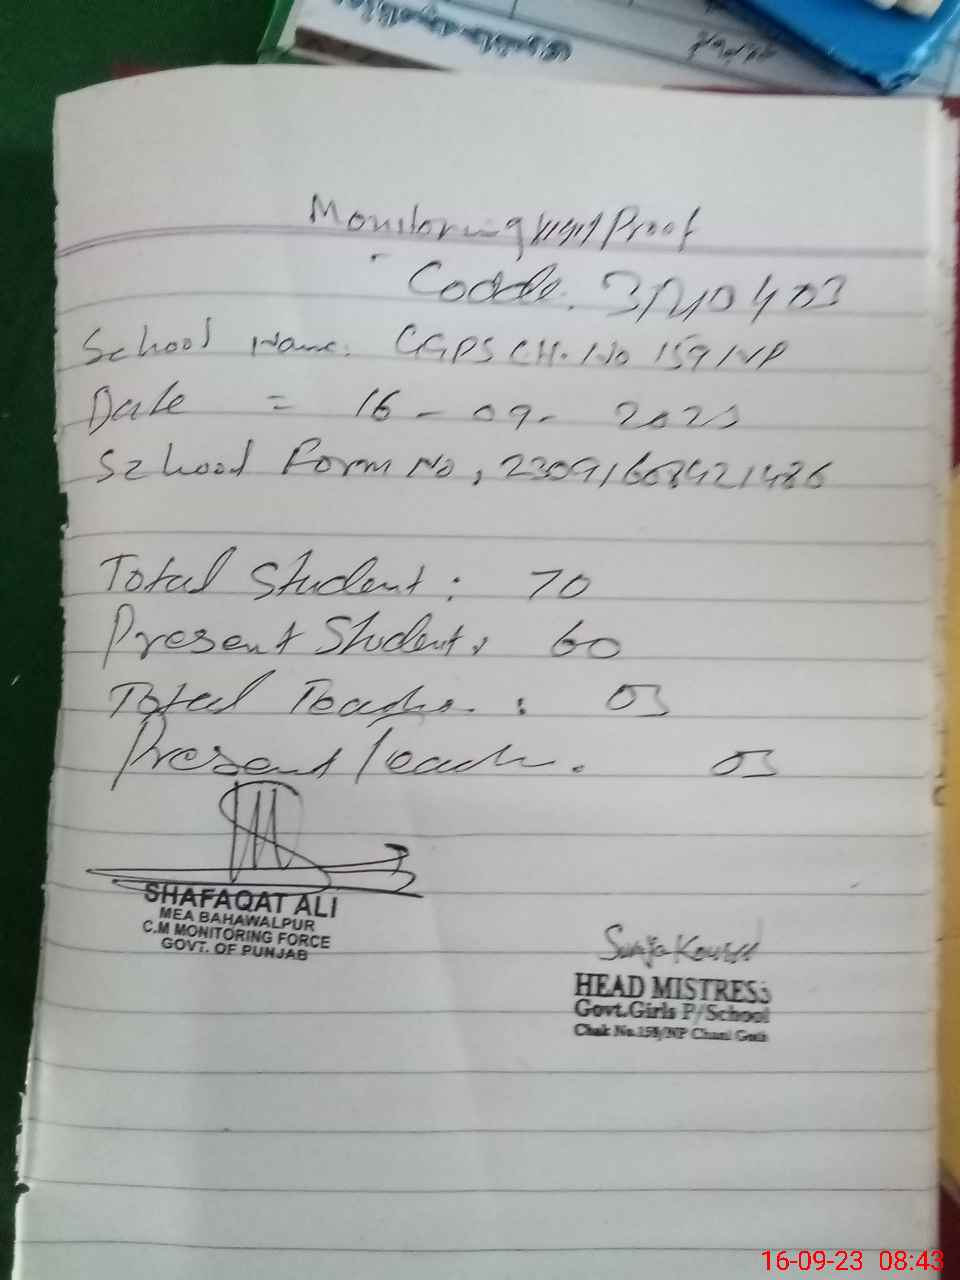 Monitoring Visit Proof
Codde. 31240403
School Name: GGPS CH. No 159/NP
Date = 16-09-2023
School Form No, 23091608421486
Total Student: 70
Present Student: 60
Total Teacher: 03
Present Teacher. 03
SHAFAQAT ALI
MEA BAHAWALPUR
C.M MONITORING FORCE
GOVT. OF PUNJAB
HEAD MISTRESS
Govt.Girls P/School
Chak No.159/NP Chani Goth
16-09-23 08:43